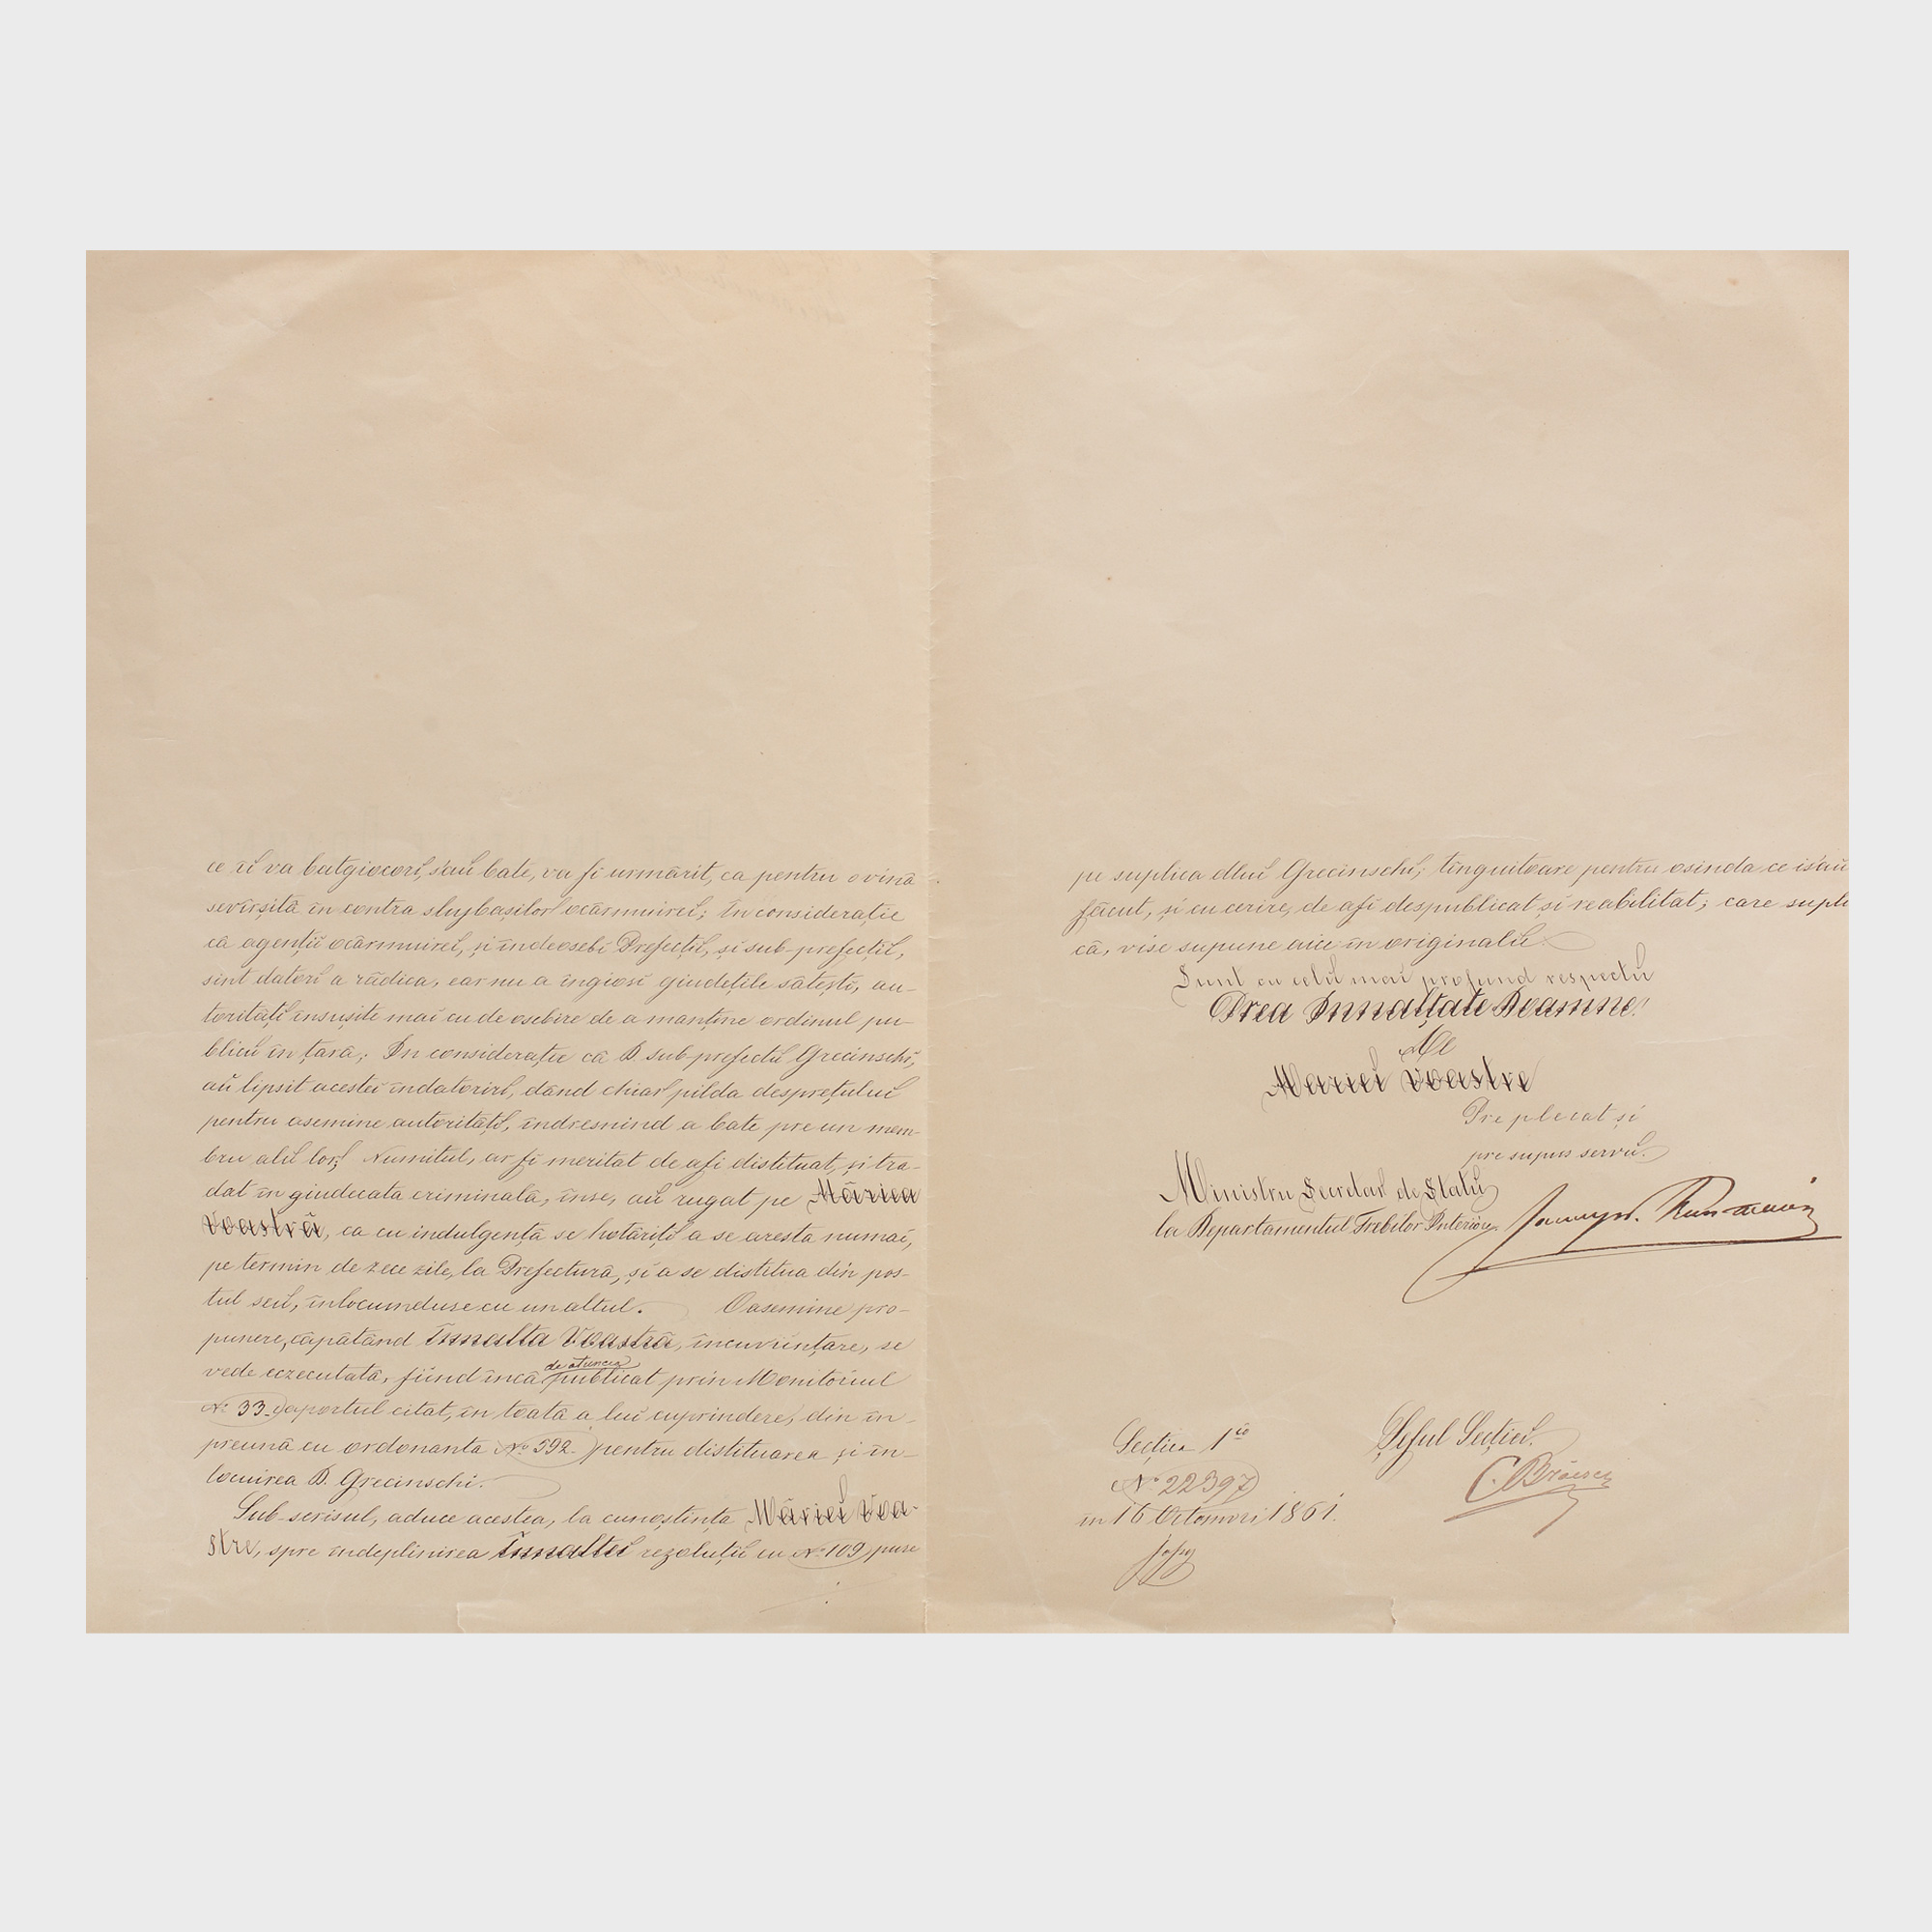 ce îĭ va batgiocorĭ, s'aŭ bate, va fi urmărit, ca pentru o vină
sevîrșită în contra slujbașilor ocârmuireĭ; În considerație
că agenții ocârmuireĭ, și îndeosebi Prefecțiĭ, și sub-prefecțiĭ,
sint datorĭ a rădica, ear nu a îngiosi giudețile sătești, au-
toritățĭ însușite mai cu de osebire de a manține ordinul pu-
blicŭ în țară; În considerație că D. sub-prefectŭ Grecinschi,
aŭ lipsit acestei îndatorirĭ, dând chiar pilda desprețuluĭ
pentru asemine autoritățĭ, îndresnind a bate pre un mem-
bru alŭ lor; Numitul, ar fi meritat de afi distituat, și tra-
dat în giudecata criminală, înse, aŭ rugat pe Măriea
Voastră, ca cu indulgență se hotărîțĭ a se aresta numai,
pe termin de zece zile, la Prefectură, și a se distitua din pos-
tul seŭ, înlocuinduse cu un altul. Oasemine pro-
punere, căpătând Înnalta Voastră, încuviințare, se
vede eczecutată, fiind încă de atuncea publicat prin Monitoriul
No 33. raportul citat, în toată a lui cuprindere, din în-
preună cu ordonanta No 592. pentru distituarea și în-
locuirea D. Grecinschi.
Sub-scrisul, aduce acestea, la cunoștința Măriei Voa-
stre, spre îndeplinirea Înnalteĭ rezoluțiĭ cu No 109 puse
pe suplica dluĭ Grecinschi, tînguitoare pentru osinda ce is'aŭ
făcut, și cu cerire, de afi despublicat și reabilitat; care supli
că, vise supune aice în originalŭ.
Sunt cu celŭ mai profund respectŭ
Prea Înnalțate Doamne!
Al
Mariei Voastre
Pre plecat și
pre supus servŭ.
Ministru Secretar de Statŭ
la Departamentul Trebilor Interióre
Secțiea 1ia
No 22397
în 16 Octomvri 1861.
Șeful Secțieĭ.
C. Brăescu